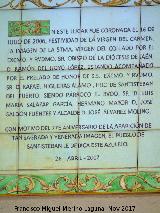 EN ESTE LUGAR FUE CORONADA EL 16 DE
JULIO DE 2006, FESTIVIDAD DE LA VIRGEN DEL CARMEN,
LA IMAGEN DE LA STMA. VIRGEN DEL COLLADO POR EL
EXCMO. Y RVDMO. SR. OBISPO DE LA DIOCESIS DE JAÉN
D. RAMÓN DEL HOYO LÓPEZ, SIENDO ACOMPAÑADO
POR EL PRELADO DE HONOR DE S.S. EXCMO. Y RVDMO.
SR. D. RAFAEL HIGUERAS ALAMO, HIJO DE SANTISTEBAN
DEL PUERTO, SIENDO PARROCO EL RVDO. SR. D. LUIS
MARIA SALAZAR GARCÍA, HERMANO MAYOR D. JOSÉ
GALDÓN FUENTES Y ALCALDE D. JOSÉ ÁLVAREZ MOLINO.
CON MOTIVO DEL 775 ANIVERSARIO DE LA APARICIÓN DE
TAN SAGRADA Y VENERADA IMAGEN, EL PUEBLO DE
SANTISTEBAN LE DEDICA ESTE AZULEJO.
28 - ABRIL - 2007
Copyright Mig Merino Luna, Nov 2017